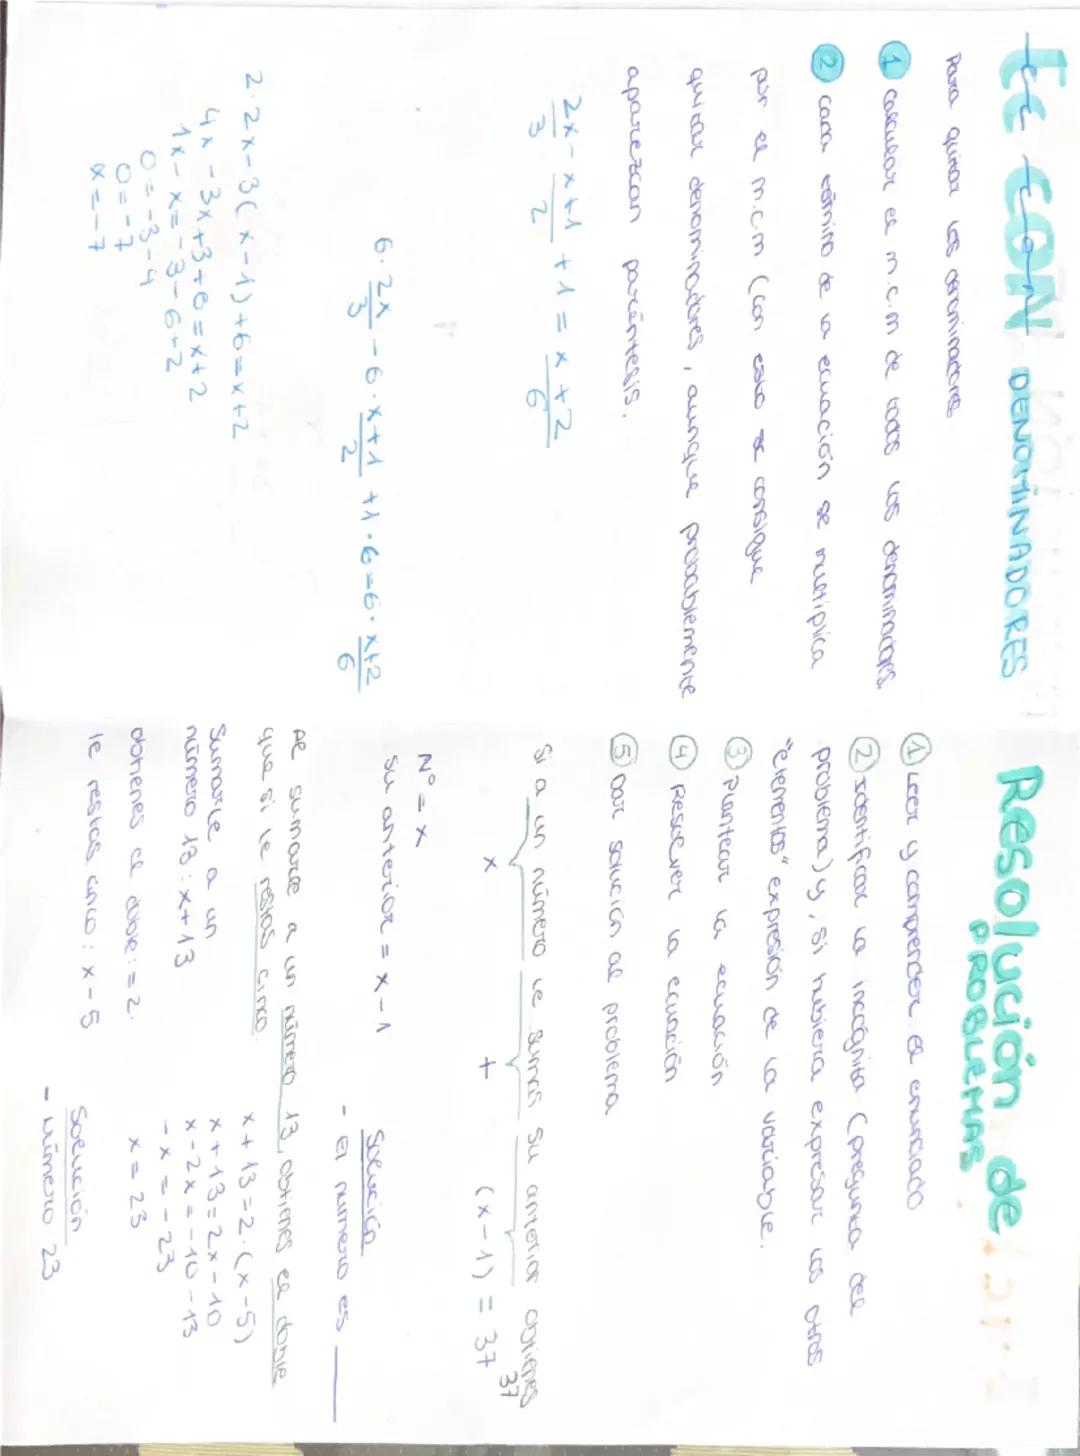 Ec CON DENOMINADORES
Para quitar los denominadores
1 calcular el m.c.m de todos los denominadores.
2 cada término de la ecuación se multiplica
por el m.c.m (con esto se consigue
quitar denominadores, aunque probablemente
aparezcan paréntesis.
2x/3 - x+1/2 + 1 = x+2/6
6·2x/3 - 6·x+1/2 + 1·6 = 6·x+2/6
2·2x-3(x-1)+6=x+2
4x-3x+3+6=x+2
1x-x=-3-6+2
0=-3-4
0=-7
x=-7
Resolución de
PROBLEMAS
1 Leer y comprender el enunciado
2 Identificar la incógnita (pregunta del
problema) y, si hubiera expresar los otros
"elementos" expresión de la variable.
3 Plantear la ecuación
4 Resolver la ecuación
5 Dar solución al problema
Si a un número le sumas su anterior obtienes
37
x + (x-1) = 37
Nº = x
Su anterior = x-1
Solución
- El número es
Al sumarle a un número 13, obtienes el doble
que si le restas cinco.
Sumarle a un
número 13: x+13
obtienes el doble: =2.
le restas cinco: x-5
x+13=2·(x-5)
x+13=2x-10
x-2x=-10-13
-x=-23
x=23
Solución
- número 23